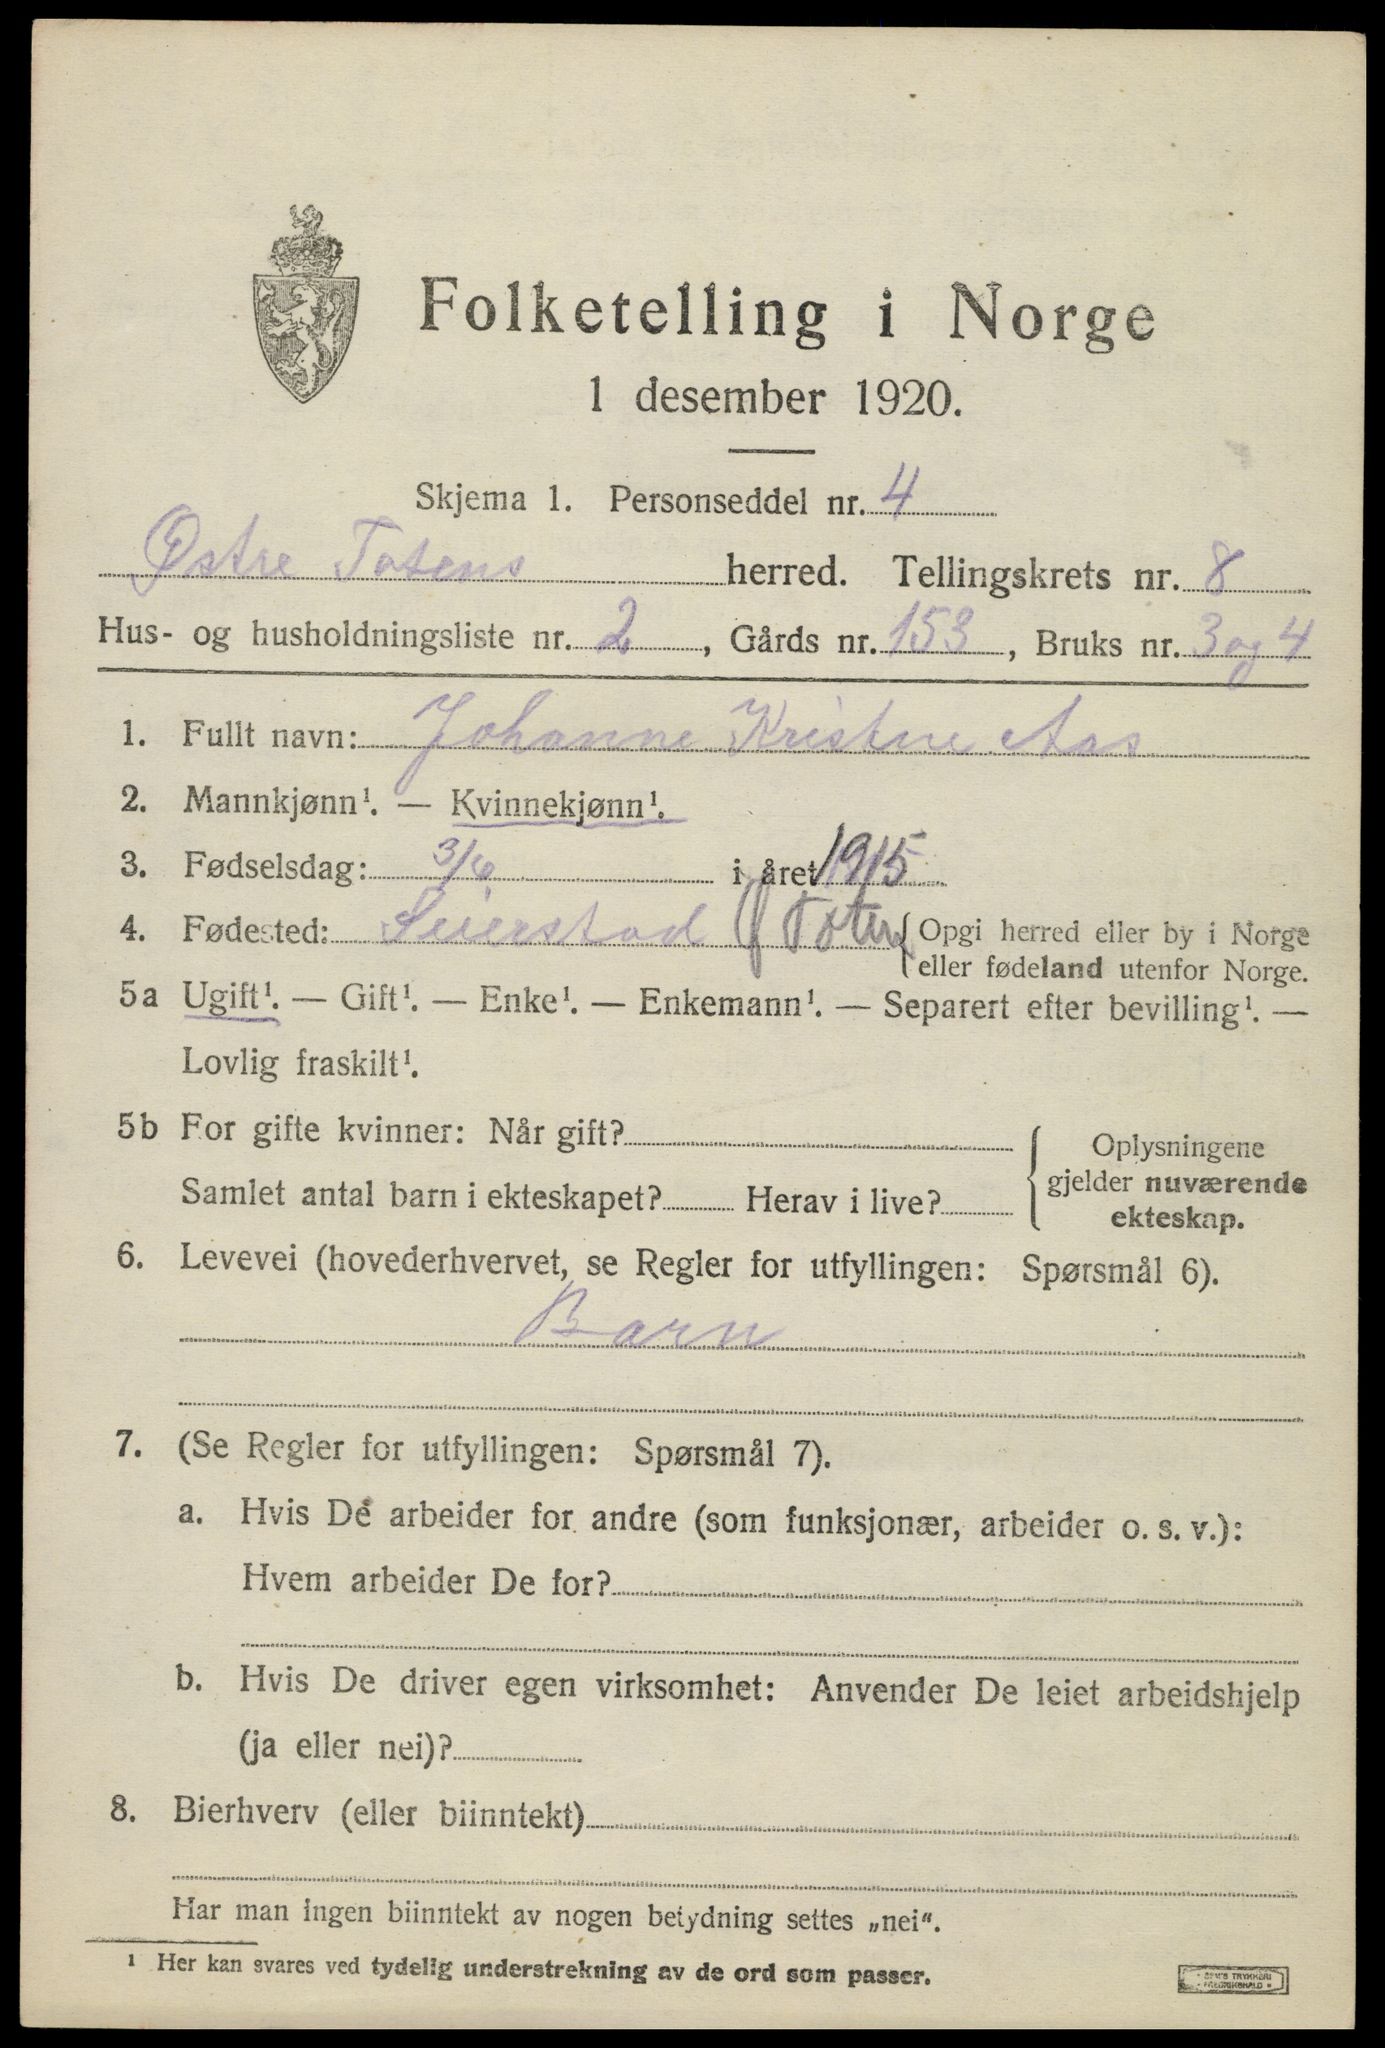 Folketelling i Norge
1 desember 1920.
Skjema 1. Personseddel nr. 4
Østre Totens herred. Tellingskrets nr. 8
Hus- og husholdningsliste nr. 2, Gårds nr. 153, Bruks nr. 3 og 4
1. Fullt navn: Johanne Kristine Aas
2. Mannkjønn¹. — Kvinnekjønn¹.
3. Fødselsdag: 3/6 i året 1915
4. Fødested: Seierstad Ø Toten { Opgi herred eller by i Norge
eller fødeland utenfor Norge.
5a Ugift¹. — Gift¹. — Enke¹. — Enkemann¹. — Separert efter bevilling¹. —
Lovlig fraskilt¹.
5b For gifte kvinner: Når gift?
Samlet antal barn i ekteskapet? Herav i live?
{ Oplysningene
gjelder nuværende
ekteskap.
6. Levevei (hovederhvervet, se Regler for utfyllingen: Spørsmål 6).
Barn
7. (Se Regler for utfyllingen: Spørsmål 7).
a. Hvis De arbeider for andre (som funksjonær, arbeider o. s. v.):
Hvem arbeider De for?
b. Hvis De driver egen virksomhet: Anvender De leiet arbeidshjelp
(ja eller nei)?
8. Bierhverv (eller biinntekt)
Har man ingen biinntekt av nogen betydning settes „nei“.
¹ Her kan svares ved tydelig understrekning av de ord som passer.
TRYKKERI
FREDRIKSHALD